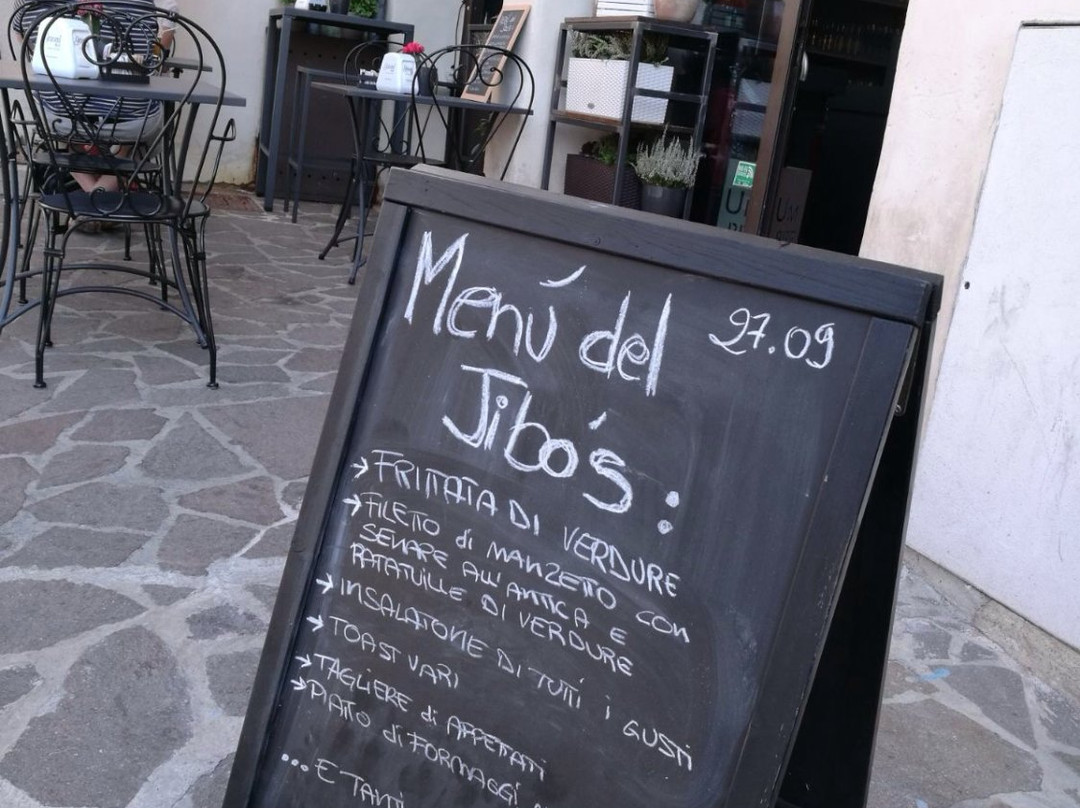 Menú del
27.09
Jibo's:
→ FRITTATA DI VERDURE
→ FILETTO di MANZETTO CON
SENAPE ALL'ANTICA E
RATATUILLE DI VERDURE
→ INSALATONE DI TUTTI i GUSTI
→ TOAST VARI
→ TAGLIERE di AFFETTATI
→ PIATTO di FORMAGGI
... E TANTI